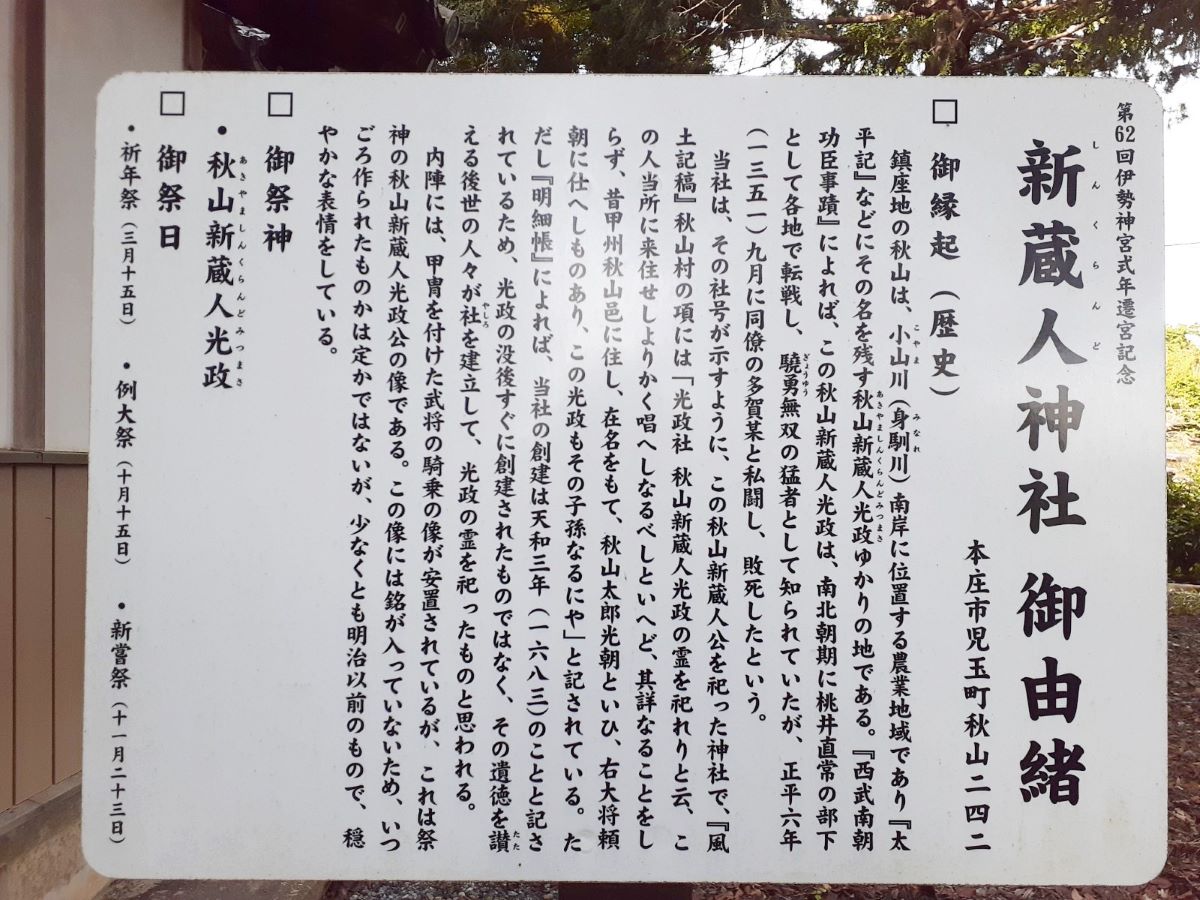 第62回伊勢神宮式年遷宮記念
新蔵人神社 御由緒
しんくらんど
本庄市児玉町秋山二四二
□ 御縁起（歴史）
鎮座地の秋山は、小山川（身馴川）南岸に位置する農業地域であり『太
こやま みなれ
平記』などにその名を残す秋山新蔵人光政ゆかりの地である。『西武南朝
あきやましんくらんどみつまさ
功臣事蹟』によれば、この秋山新蔵人光政は、南北朝期に桃井直常の部下
として各地で転戦し、驍勇無双の猛者として知られていたが、正平六年
ぎょうゆう
（一三五一）九月に同僚の多賀某と私闘し、敗死したという。
当社は、その社号が示すように、この秋山新蔵人公を祀った神社で、『風
土記稿』秋山村の項には「光政社 秋山新蔵人光政の霊を祀れりと云、こ
の人当所に来住せしよりかく唱へしなるべしといへど、其詳なることをし
らず、昔甲州秋山邑に住し、在名をもて、秋山太郎光朝といひ、右大将頼
朝に仕へしものあり、この光政もその子孫なるにや」と記されている。た
だし『明細帳』によれば、当社の創建は天和三年（一六八三）のことと記さ
れているため、光政の没後すぐに創建されたものではなく、その遺徳を讃
たた
える後世の人々が社を建立して、光政の霊を祀ったものと思われる。
やしろ
内陣には、甲冑を付けた武将の騎乗の像が安置されているが、これは祭
神の秋山新蔵人光政公の像である。この像には銘が入っていないため、いつ
ごろ作られたものかは定かではないが、少なくとも明治以前のもので、穏
やかな表情をしている。
□ 御祭神
・秋山新蔵人光政
あきやましんくらんどみつまさ
□ 御祭日
・祈年祭（三月十五日） ・例大祭（十月十五日） ・新嘗祭（十一月二十三日）